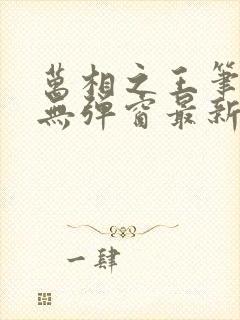 萬相之王筆
無彈窗最新
一肆